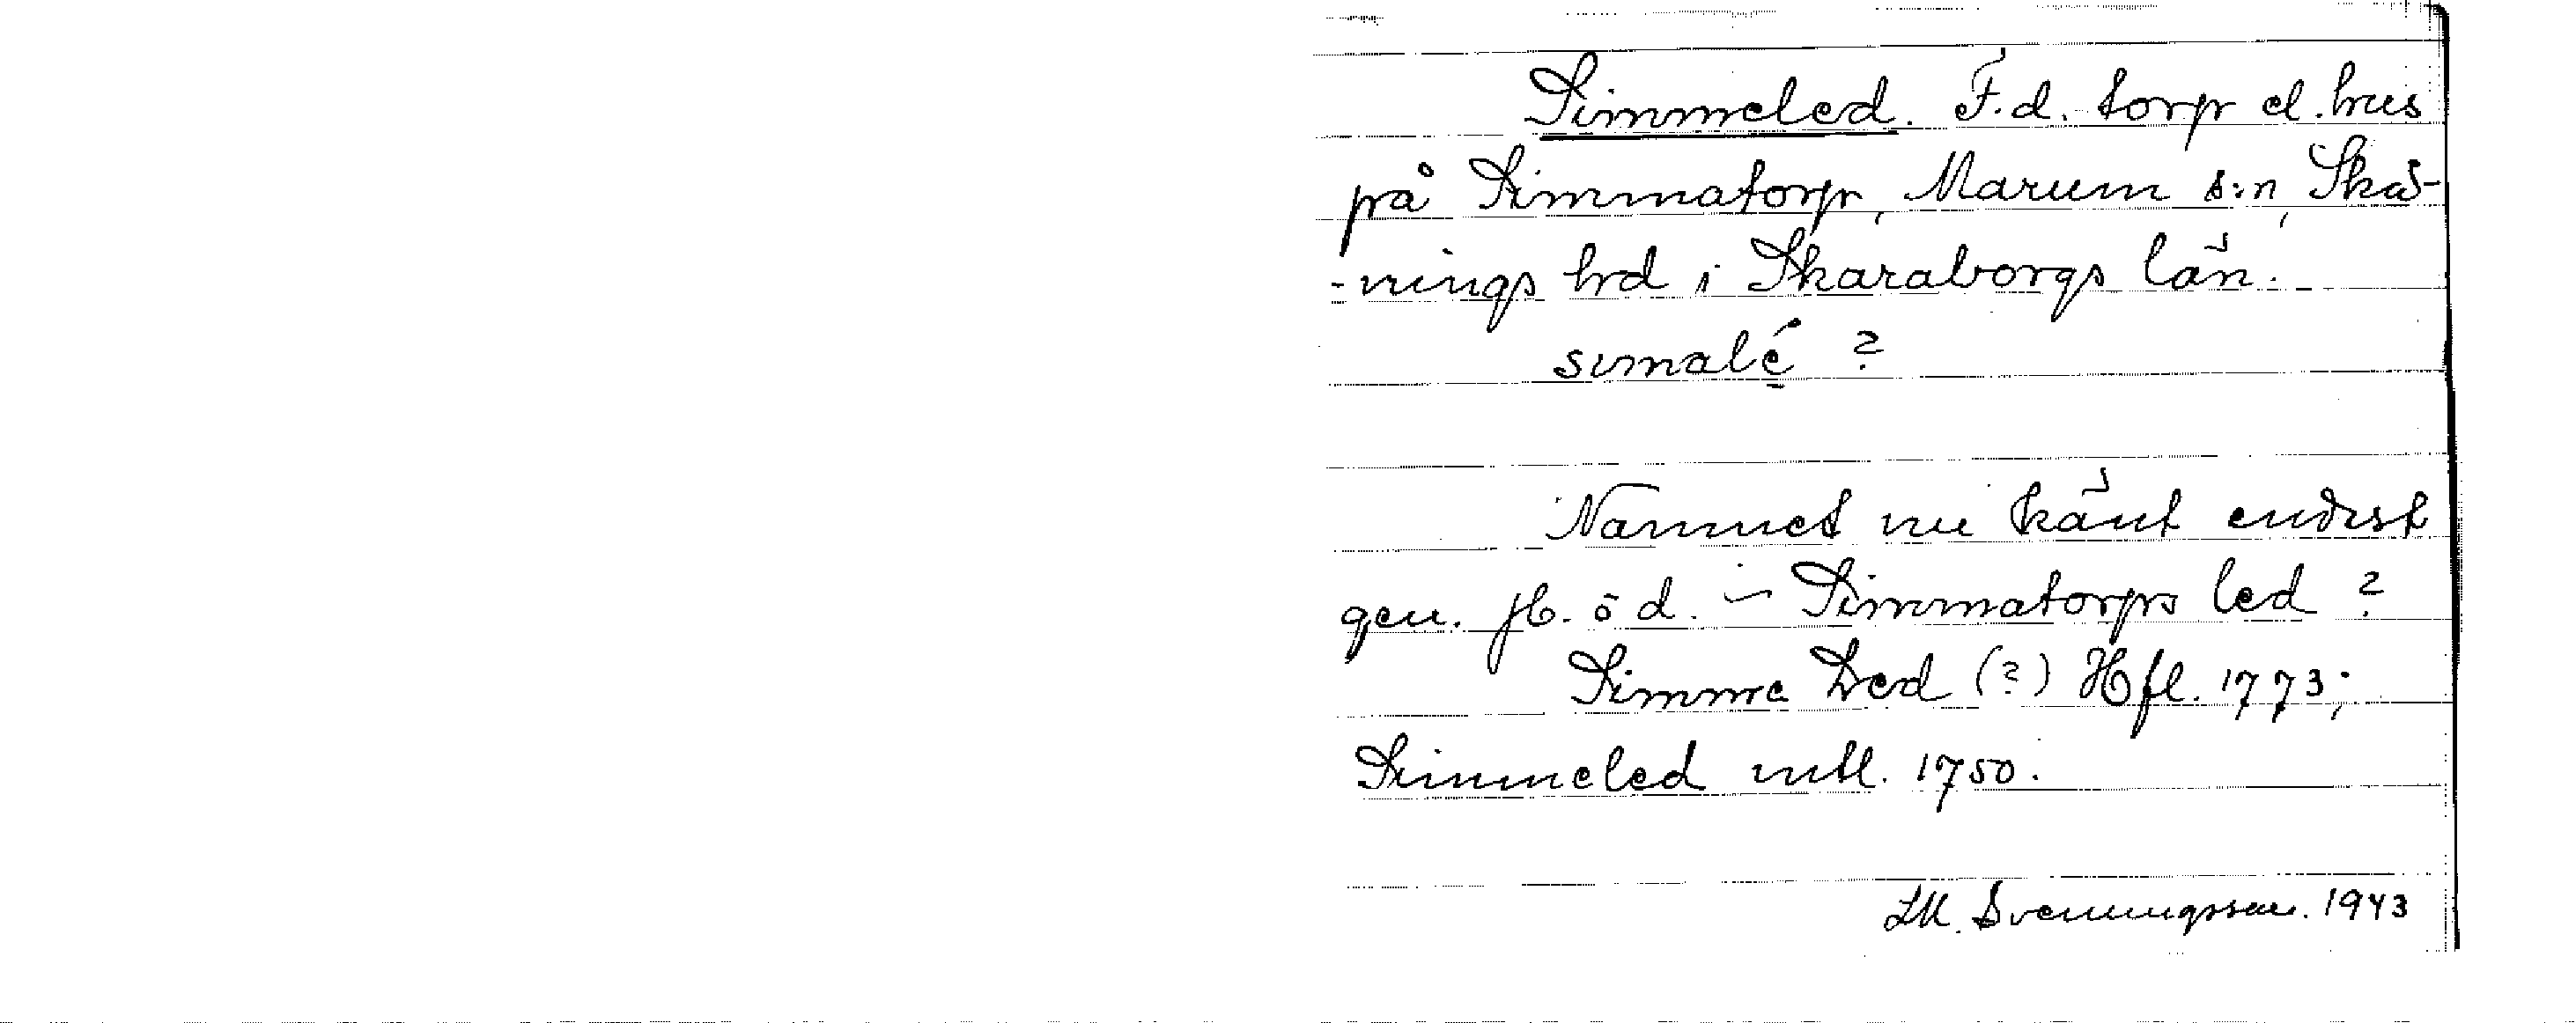 Simmeled. F.d. torp el. hus
på Simmatorp, Marum s:n, Skå-
-nings hd i Skaraborgs län.
sɩmalé̱ ?
Namnet nu känt endast
gen. jb. ö d. – Simmatorps led ?
Simme Led (?) Hfl. 1773;
Simmeled mtl. 1750.
Svenningsson. 1943